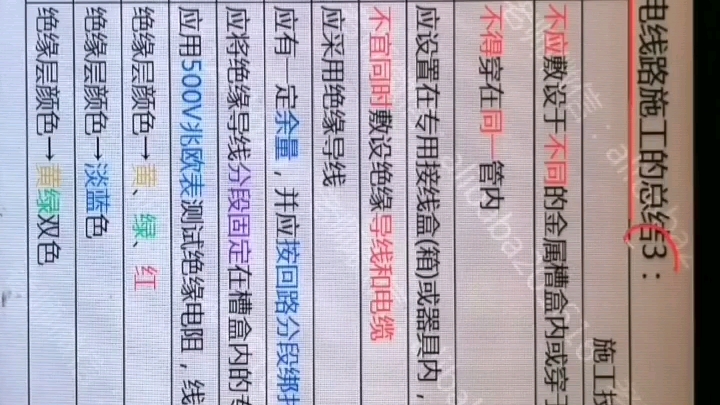 电线路施工的总结3：
施工技
不应敷设于不同的金属槽盒内或穿于
不得穿在同一管内
应设置在专用接线盒(箱)或器具内，
不宜同时敷设绝缘导线和电缆
应采用绝缘导线
应有一定余量，并应按回路分段绑扎
应将绝缘导线分段固定在槽盒内的专
应用500V兆欧表测试绝缘电阻，线
绝缘层颜色→黄、绿、红
绝缘层颜色→淡蓝色
绝缘层颜色→黄绿双色